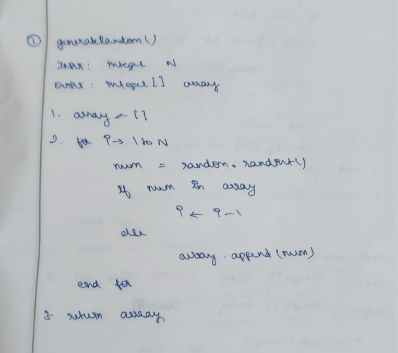 ① generateRandom()
Input: integer N
Output: integer[] array
1. array ← []
2. for i → 1 to N
num = random.randint()
if num in array
i ← i-1
else
array.append(num)
end for
3. return array